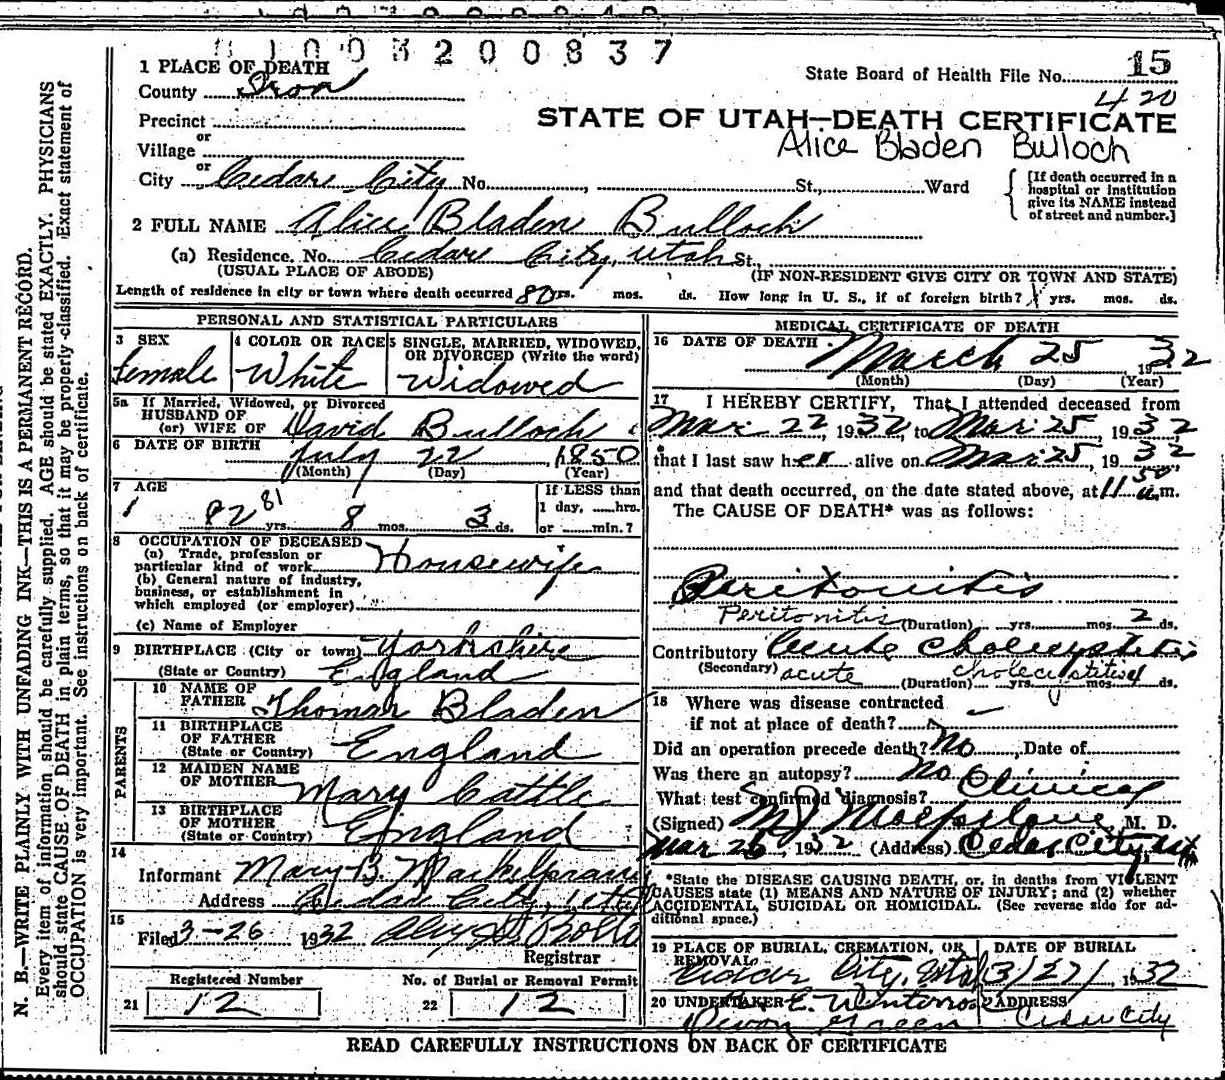 11003200837
1 PLACE OF DEATH
State Board of Health File No. 15
County Iron
420
Precinct
STATE OF UTAH—DEATH CERTIFICATE
or
Alice Bladen Bulloch
Village
or
City Cedar City No. , St., Ward
[If death occurred in a
hospital or institution
give its NAME instead
of street and number.]
2 FULL NAME Alice Bladen Bulloch
(a) Residence. No. Cedar City, Utah St.,
(USUAL PLACE OF ABODE) (IF NON-RESIDENT GIVE CITY OR TOWN AND STATE)
Length of residence in city or town where death occurred 80 yrs. mos. ds. How long in U. S., if of foreign birth? yrs. mos. ds.
PERSONAL AND STATISTICAL PARTICULARS
3 SEX
female
4 COLOR OR RACE
White
5 SINGLE, MARRIED, WIDOWED,
OR DIVORCED (Write the word)
Widowed
5a If Married, Widowed, or Divorced
HUSBAND OF
(or) WIFE OF David Bulloch
6 DATE OF BIRTH July 22, 1850
(Month) (Day) (Year)
7 AGE
82 81 yrs. 8 mos. 3 ds.
If LESS than
1 day, hrs.
or min.?
8 OCCUPATION OF DECEASED
(a) Trade, profession or
particular kind of work Housewife
(b) General nature of industry,
business, or establishment in
which employed (or employer)
(c) Name of Employer
9 BIRTHPLACE (City or town) Yorkshire
(State or Country) England
PARENTS
10 NAME OF
FATHER Thomas Bladen
11 BIRTHPLACE
OF FATHER
(State or Country) England
12 MAIDEN NAME
OF MOTHER Mary Cattle
13 BIRTHPLACE
OF MOTHER
(State or Country) England
14
Informant Mary B. Mackelprang
Address Cedar City, Utah
15
Filed 3-26 1932
Registrar
Registered Number
21 12
No. of Burial or Removal Permit
22 12
MEDICAL CERTIFICATE OF DEATH
16 DATE OF DEATH March 25 1932
(Month) (Day) (Year)
17 I HEREBY CERTIFY, That I attended deceased from
Mar 22, 1932, to Mar 25, 1932
that I last saw her alive on Mar 25, 1932
and that death occurred, on the date stated above, at 11 50 a.m.
The CAUSE OF DEATH* was as follows:
Peritonitis
Peritonitis (Duration) yrs. mos. 2 ds.
Contributory Acute cholecystitis
(Secondary) acute cholecystitis (Duration) yrs. mos. 4 ds.
18 Where was disease contracted
if not at place of death?
Did an operation precede death? No Date of
Was there an autopsy? No
What test confirmed diagnosis? Clinical
(Signed) M J Macfarlane, M. D.
Mar 26, 1932 (Address) Cedar City, Ut
*State the DISEASE CAUSING DEATH, or, in deaths from VIOLENT
CAUSES state (1) MEANS AND NATURE OF INJURY; and (2) whether
ACCIDENTAL, SUICIDAL OR HOMICIDAL. (See reverse side for ad-
ditional space.)
19 PLACE OF BURIAL, CREMATION, OR
REMOVAL
Cedar City, Utah
DATE OF BURIAL
3/27/, 1932
20 UNDERTAKER E. Winterrose
Devon Green
ADDRESS
Cedar City
READ CAREFULLY INSTRUCTIONS ON BACK OF CERTIFICATE
N. B.—WRITE PLAINLY WITH UNFADING INK—THIS IS A PERMANENT RECORD.
Every item of information should be carefully supplied. AGE should be stated EXACTLY. PHYSICIANS
should state CAUSE OF DEATH in plain terms, so that it may be properly classified. Exact statement of
OCCUPATION is very important. See instructions on back of certificate.